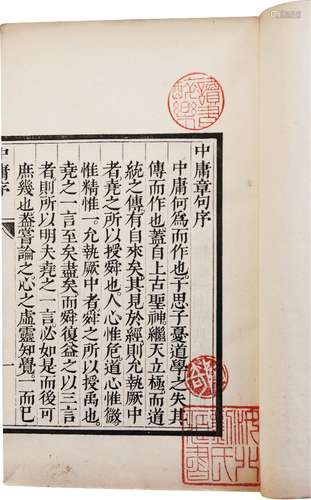 中庸章句序
中庸何為而作也子思子憂道學之失其
傳而作也蓋自上古聖神繼天立極而道
統之傳有自來矣其見於經則允執厥中
者堯之所以授舜也人心惟危道心惟微
惟精惟一允執厥中者舜之所以授禹也
堯之一言至矣盡矣而舜復益之以三言
者則所以明夫堯之一言必如是而後可
庶幾也蓋嘗論之心之虛靈知覺一而已
中庸序
一